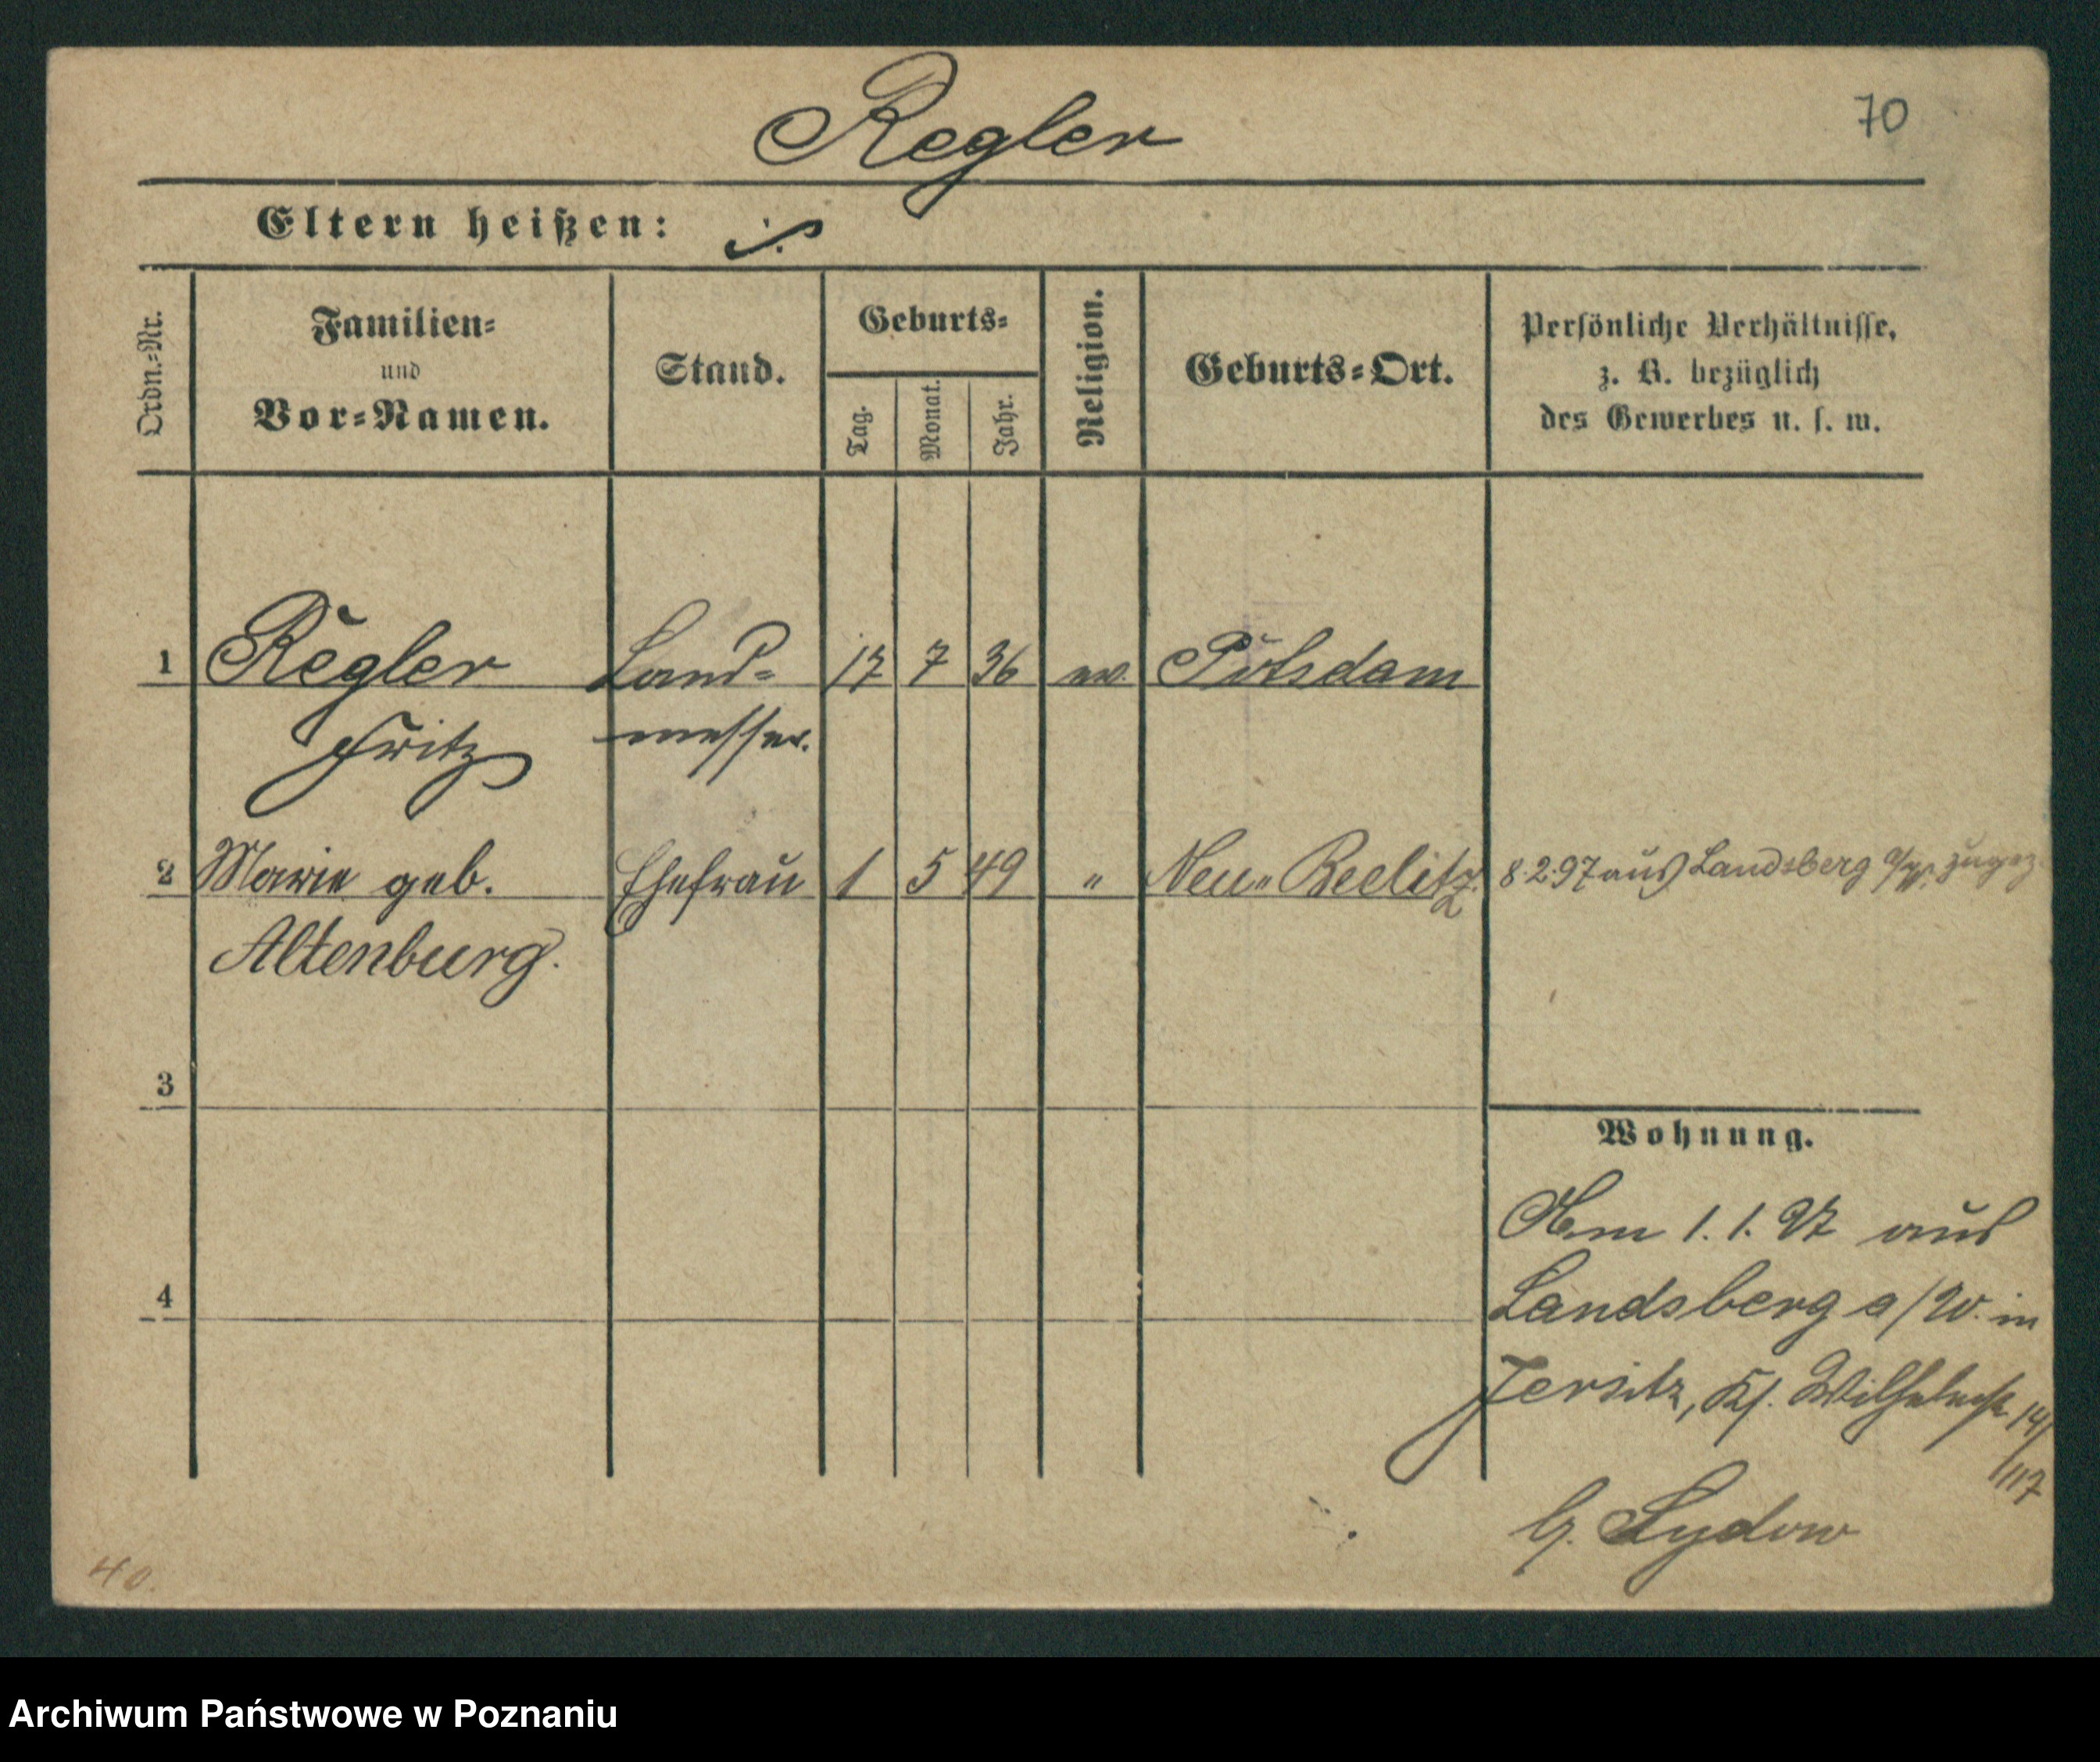 Regler
70
Eltern heißen: ./.
Ordn.=Nr.
Familien=
und
Vor=Namen.
Stand.
Geburts=
Tag.
Monat.
Jahr.
Religion.
Geburts=Ort.
Persönliche Verhältnisse,
z. B. bezüglich
des Gewerbes u. s. w.
1 Regler Land= 17 7 36 ev. Potsdam
Fritz messer.
2 Marie geb. Ehefrau 1 5 49 " Neu= Beelitz. 8.2.97 aus Landsberg a/W. zugez.
Altenburg.
3
Wohnung.
Am 1. 1. 97 aus
4
Landsberg a/W. in
Jersitz, Ks. Wilhelmstr. 14/
/117
b. Sydow
40.
Archiwum Państwowe w Poznaniu